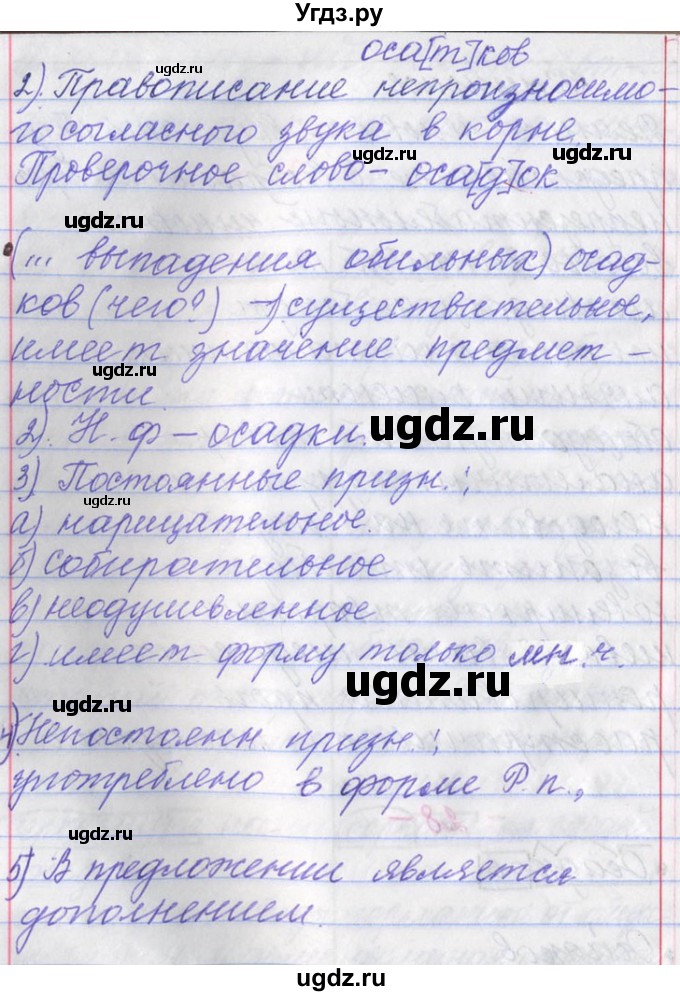 Угдз.ру
оса[т]ков
2). Правописание непроизносимо-
го согласного звука в корне.
ugdz.ru ugdz.ru
Проверочное слово - оса[д]ок
ugdz.ru
ugdz.ru
(... выпадения обильных) осад-
ков (чего?) -1) существительное,
имеет значение предмет-
ugdz.ru
ности.
2). Н.ф - осадки.
ugdz.ru
3). Постоянные призн.:
ugdz.ru
а) нарицательное.
б) собирательное
ugdz.ru
в) неодушевленное
г) имеет форму только мн.ч.
ugdz.ru
ugdz.ru
4) Непостоянн. призн.:
употреблено в форме Р.п.,
ugdz.ru
ugdz.ru
5) В предложении является
дополнением.
ugdz.ru
ugdz.ru